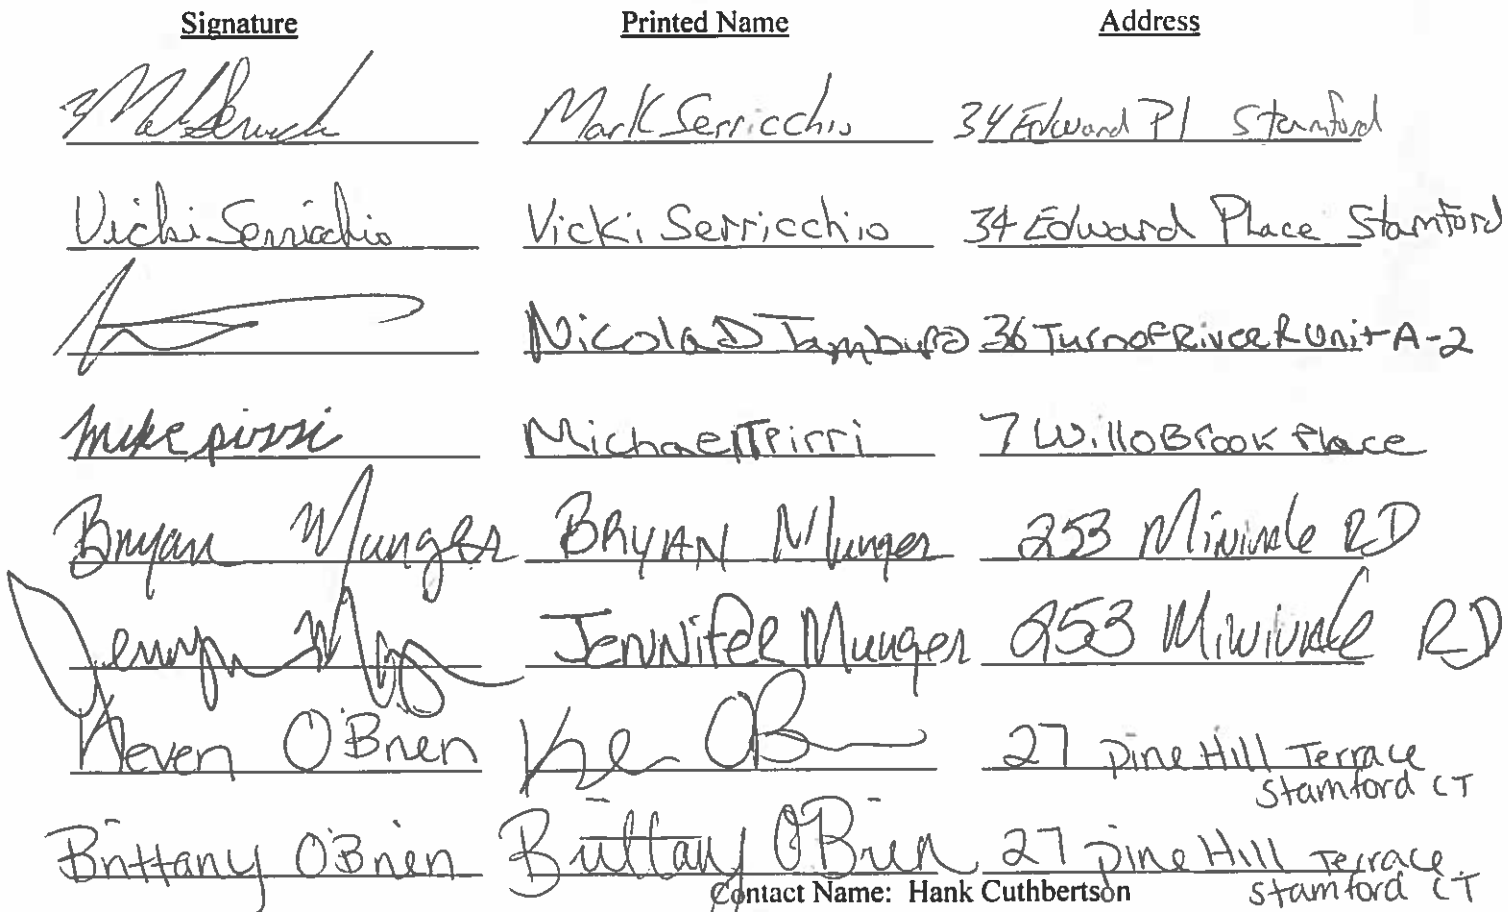 Signature Printed Name Address
Mark Serricchio 34 Edward Pl Stamford
Vicki Serricchio Vicki Serricchio 34 Edward Place Stamford
Nicola D Tamburo 36 Turn of River R Unit A-2
Mike pirri Michael T Pirri 7 WilloBrook Place
Bryan Munger BRYAN Munger 253 RD
JENNifeR Munger 253 RD
Keven O'Brien 27 Pine Hill Terrace
Stamford CT
Brittany O'Brien Brittany O'Brien 27 Pine Hill Terrace
Contact Name: Hank Cuthbertson Stamford CT